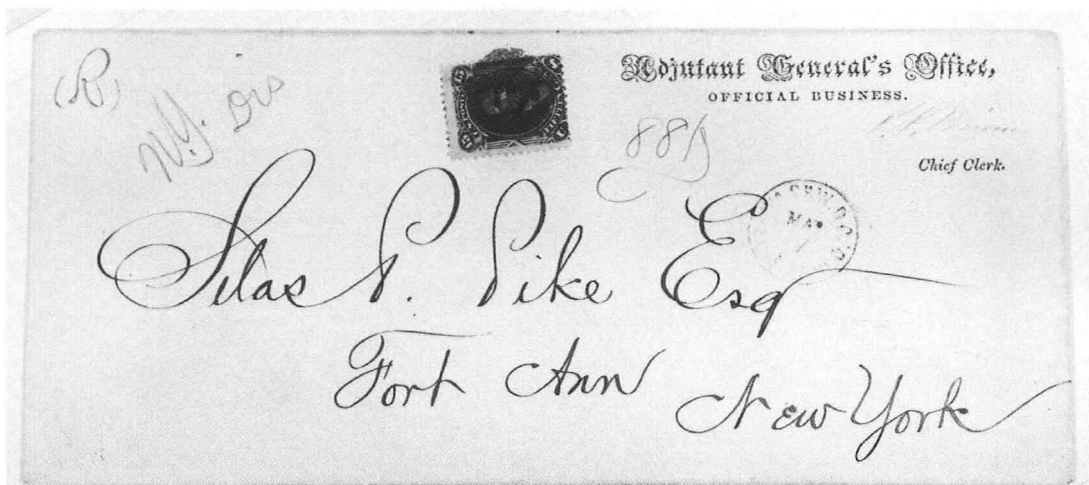 (R)
N.Y. Dis
Adjutant General's Office,
OFFICIAL BUSINESS.
881
Chief Clerk.
MAR
Silas P. Pike Esq
Fort Ann
New York